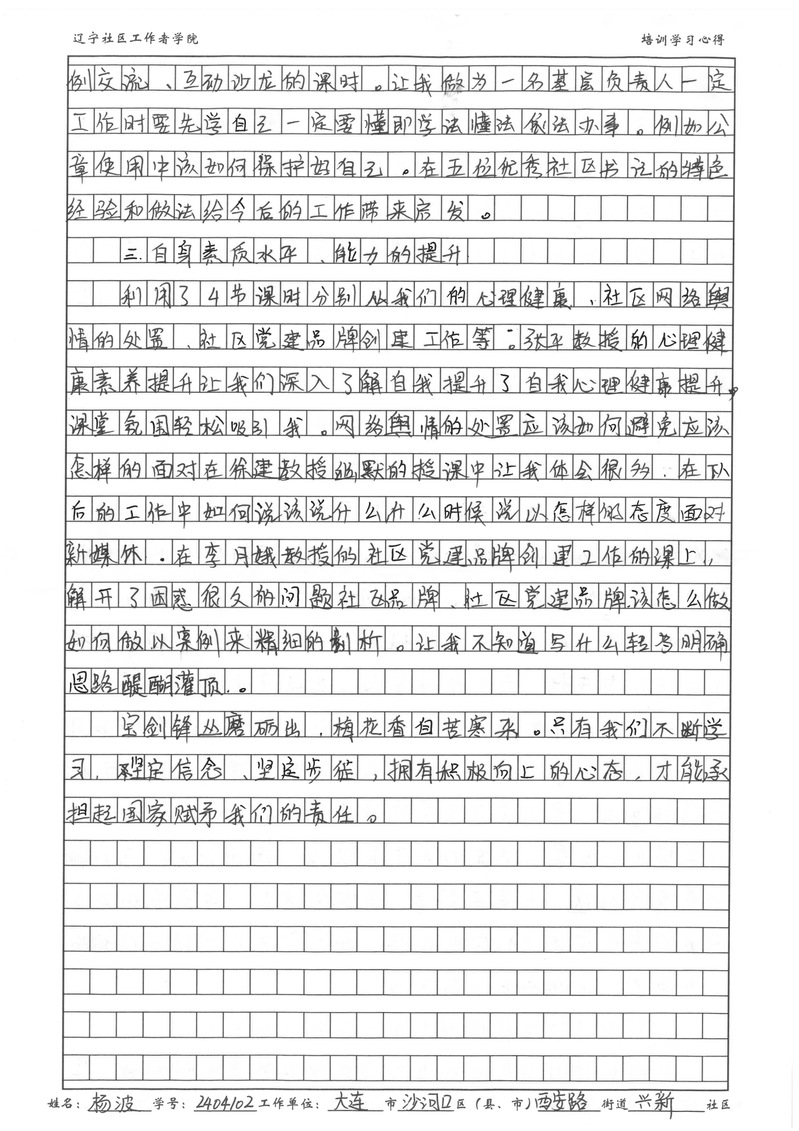 辽宁社区工作者学院 培训学习心得
例交流、互动沙龙的课时。让我做为一名基层负责人一定
工作时要先学自己一定要懂即学法懂法依法办事。例如公
章使用中该如何保护好自己。在五位优秀社区书记的特色
经验和做法给今后的工作带来启发。
三.自身素质水平、能力的提升
利用了4节课时分别从我们的心理健康、社区网络舆
情的处置、社区党建品牌创建工作等:张平教授的心理健
康素养提升让我们深入了解自我提升了自我心理健康提升,
课堂氛围轻松吸引我。网络舆情的处置应该如何避免应该
怎样的面对在徐建教授幽默的授课中让我体会很多.在以
后的工作中如何说该说什么什么时候说以怎样的态度面对
新媒体.在李月娥教授的社区党建品牌创建工作的课上,
解开了困惑很久的问题社区品牌、社区党建品牌该怎么做
如何做以案例来精细的剖析。让我不知道写什么转为明确
思路醍醐灌顶.。
宝剑锋从磨砺出,梅花香自苦寒来。只有我们不断学
习,坚定信念、坚定步徒,拥有积极向上的心态,才能承
担起国家赋予我们的责任。
姓名:杨波 学号:2404102 工作单位:大连市沙河口区(县、市)西安路街道兴新社区